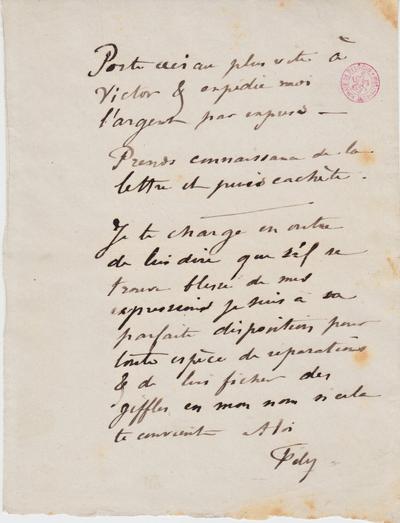 Porte ceci au plus vite à
Victor & expédie moi
l'argent par exprès —
Prends connaissance de la
lettre et puis cachète.
Je te charge en outre
de lui dire que s'il se
trouve blessé de mes
expressions je suis à sa
parfaite disposition pour
toute espèce de réparations
& de lui ficher des
giffles en mon nom si cela
te convient
Fély